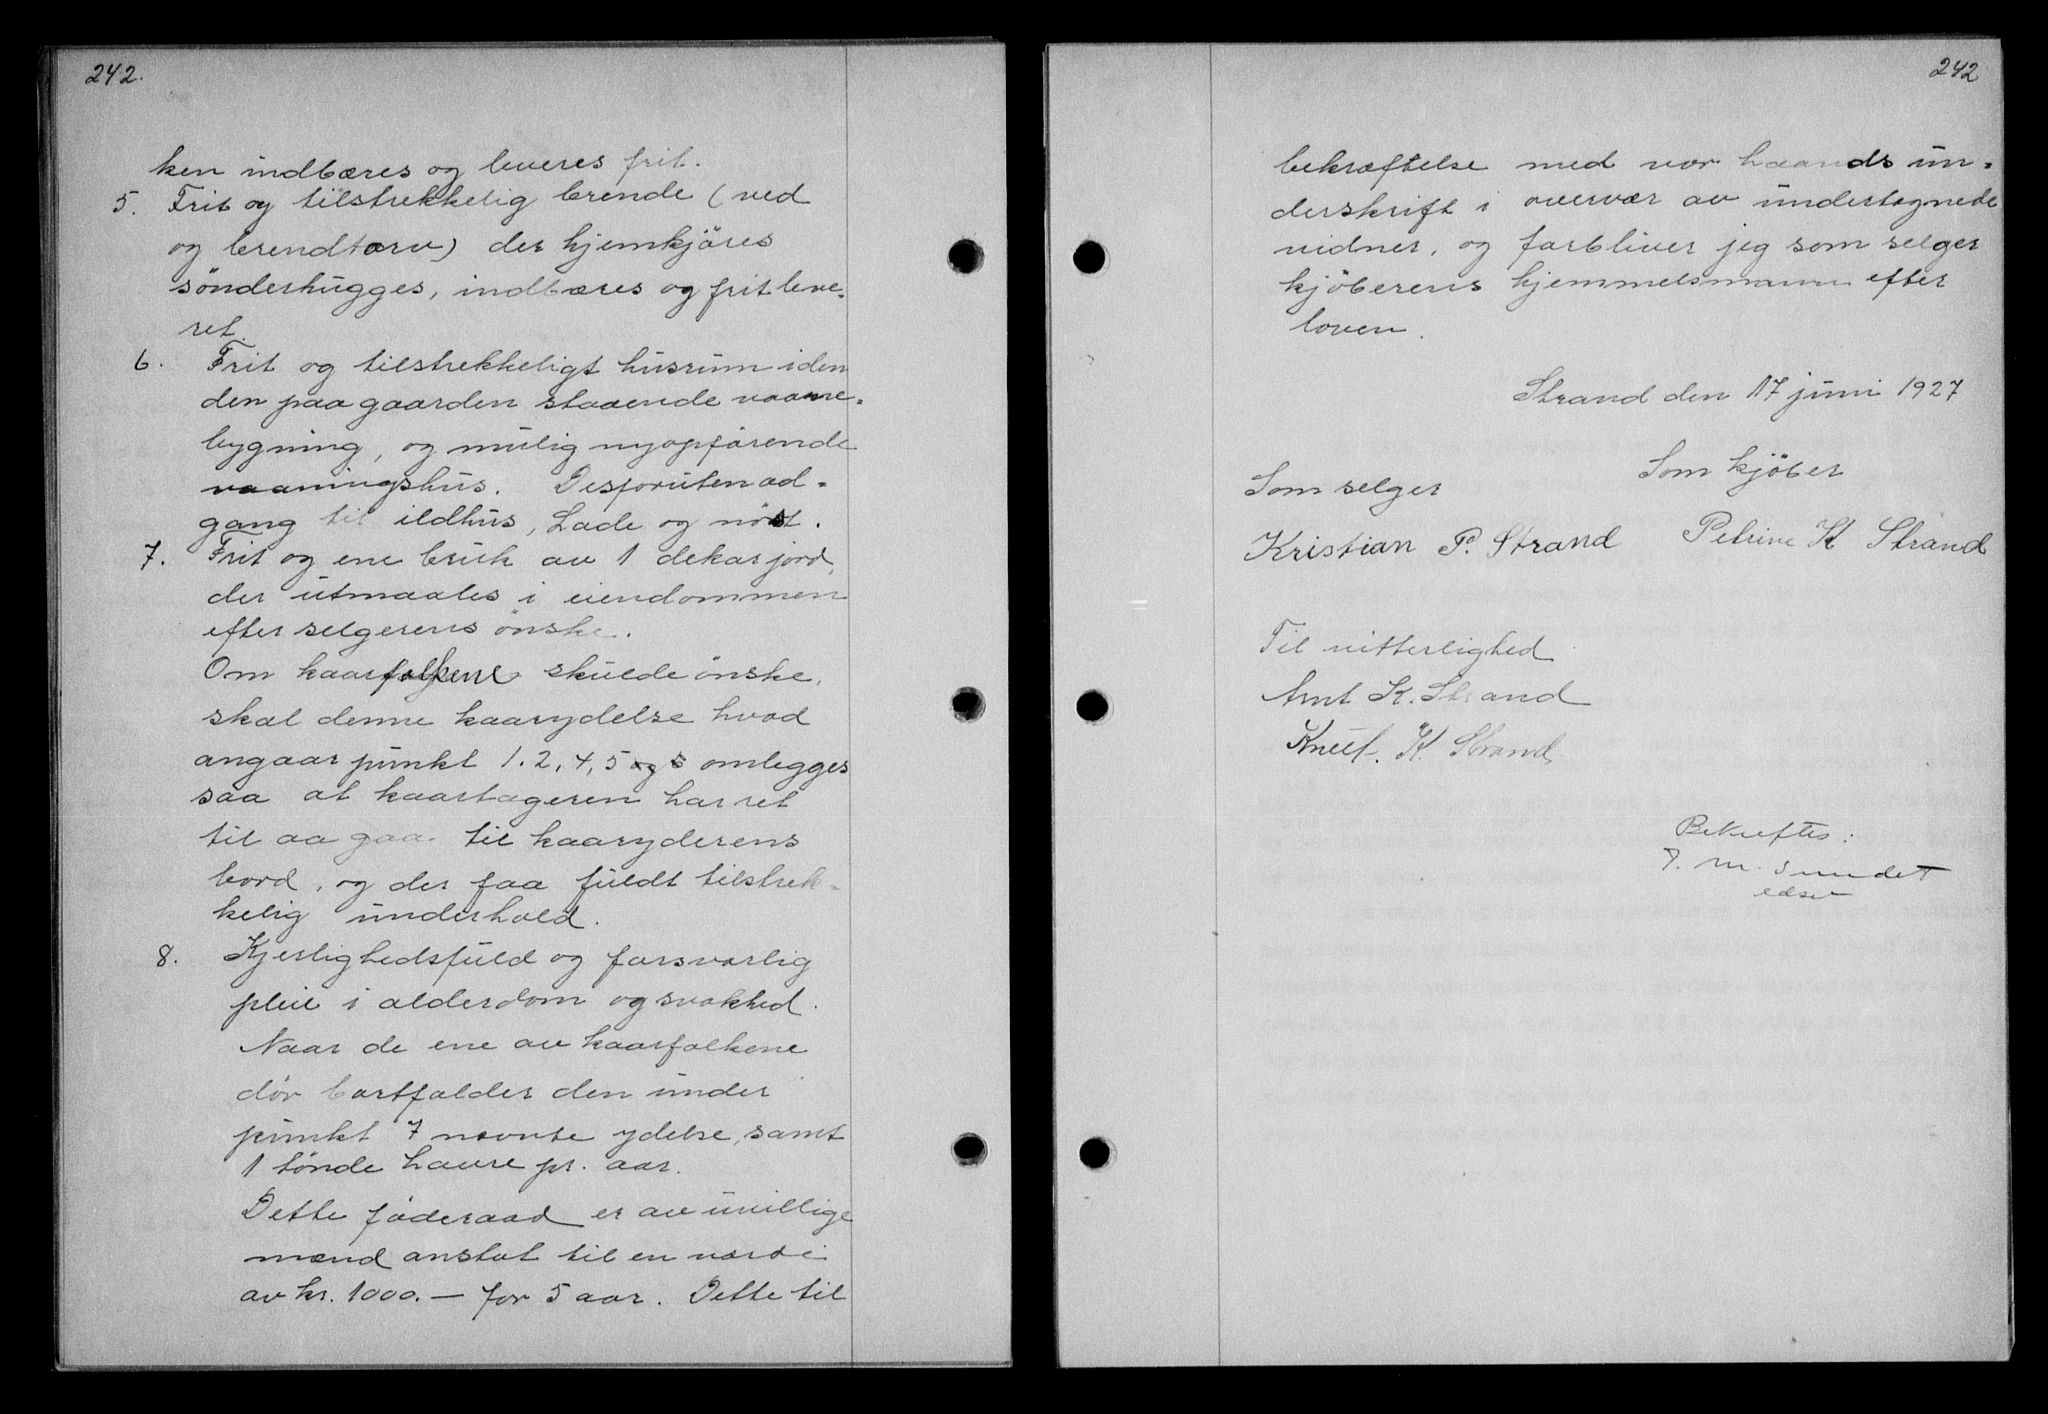 242.
ken indbæres og leveres frit.
5. Frit og tilstrekkelig brende (ved
og brendtorv) der hjemkjöres
sönderhugges, indbæres og frit leve-
ret.
6. Frit og tilstrekkeligt husrum i den
den paa gaarden staaende vaane-
bygning, og mulig nyopförende
vaaningshus. Desforuten ad-
gang til ildhus, Lade og nöst.
7. Frit og ene bruk av 1 dekar jord,
der utmaales i eiendommen
efter selgerens önske.
Om kaarfolkene skulde önske,
skal denne kaarydelse hvad
angaar punkt 1. 2, 4, 5 omlegges
saa at kaartageren har ret
til aa gaa til kaaryderens
bord, og der faa fuldt tilstrek-
kelig underhold.
8. Kjerlighedsfuld og forsvarlig
pleie i alderdom og svakhed.
Naar de ene av kaarfolkene
dör bortfalder den under
punkt 7 nevnte ydelse, samt
1 tönde havre pr. aar.
Dette föderaad er av uvillige
mænd anslat til en værdi
av kr. 1000.— for 5 aar. Dette til
242
bekræftelse med vor haands un-
derskrift i overvær av undertegnede
vidner, og forbliver jeg som selger
kjöberens hjemmelsmann efter
loven.
Strand den 17 juni 1927
Som selger
Som kjöber
Kristian P. Strand
Petrine K Strand
Til vitterlighed
Arnt K. Strand
Knut. K. Strand
Bekreftes:
M. Sundet